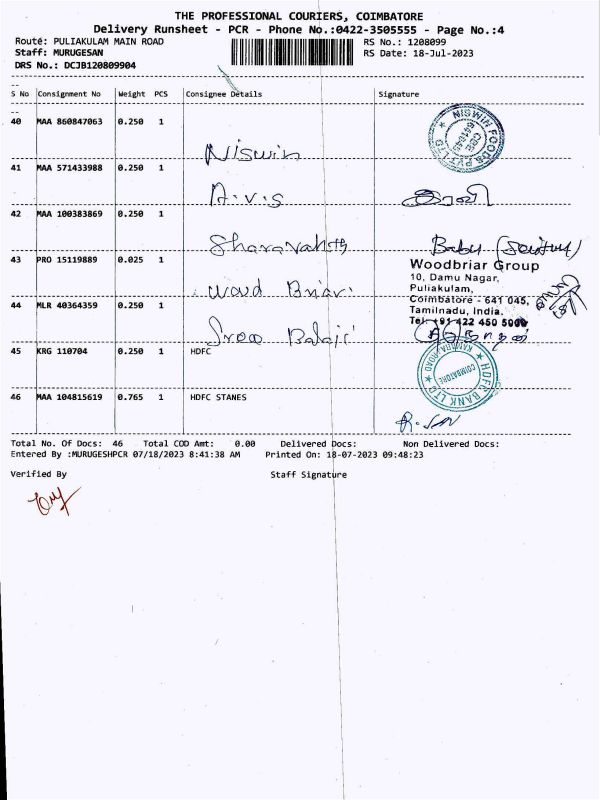 THE PROFESSIONAL COURIERS, COIMBATORE
Delivery Runsheet - PCR - Phone No.:0422-3505555 - Page No.:4
Route: PULIAKULAM MAIN ROAD RS No.: 1208099
Staff: MURUGESAN RS Date: 18-Jul-2023
DRS No.: DCJB120809904
S No Consignment No Weight PCS Consignee Details Signature
40 MAA 860847063 0.250 1 Niswin
NISWIN FOODS PVT LTD
CBE
641045
41 MAA 571433988 0.250 1 A.V.S
42 MAA 100383869 0.250 1 Baby
43 PRO 15119889 0.025 1
Woodbriar Group
10, Damu Nagar,
Puliakulam,
Coimbatore - 641 045,
Tamilnadu, India.
Tel: +91 422 450 5000
44 MLR 40364359 0.250 1 Balaji
45 KRG 110704 0.250 1 HDFC
HDFC BANK LTD
COIMBATORE
46 MAA 104815619 0.765 1 HDFC STANES
Total No. Of Docs: 46 Total COD Amt: 0.00 Delivered Docs: Non Delivered Docs:
Entered By :MURUGESHPCR 07/18/2023 8:41:38 AM Printed On: 18-07-2023 09:48:23
Verified By Staff Signature